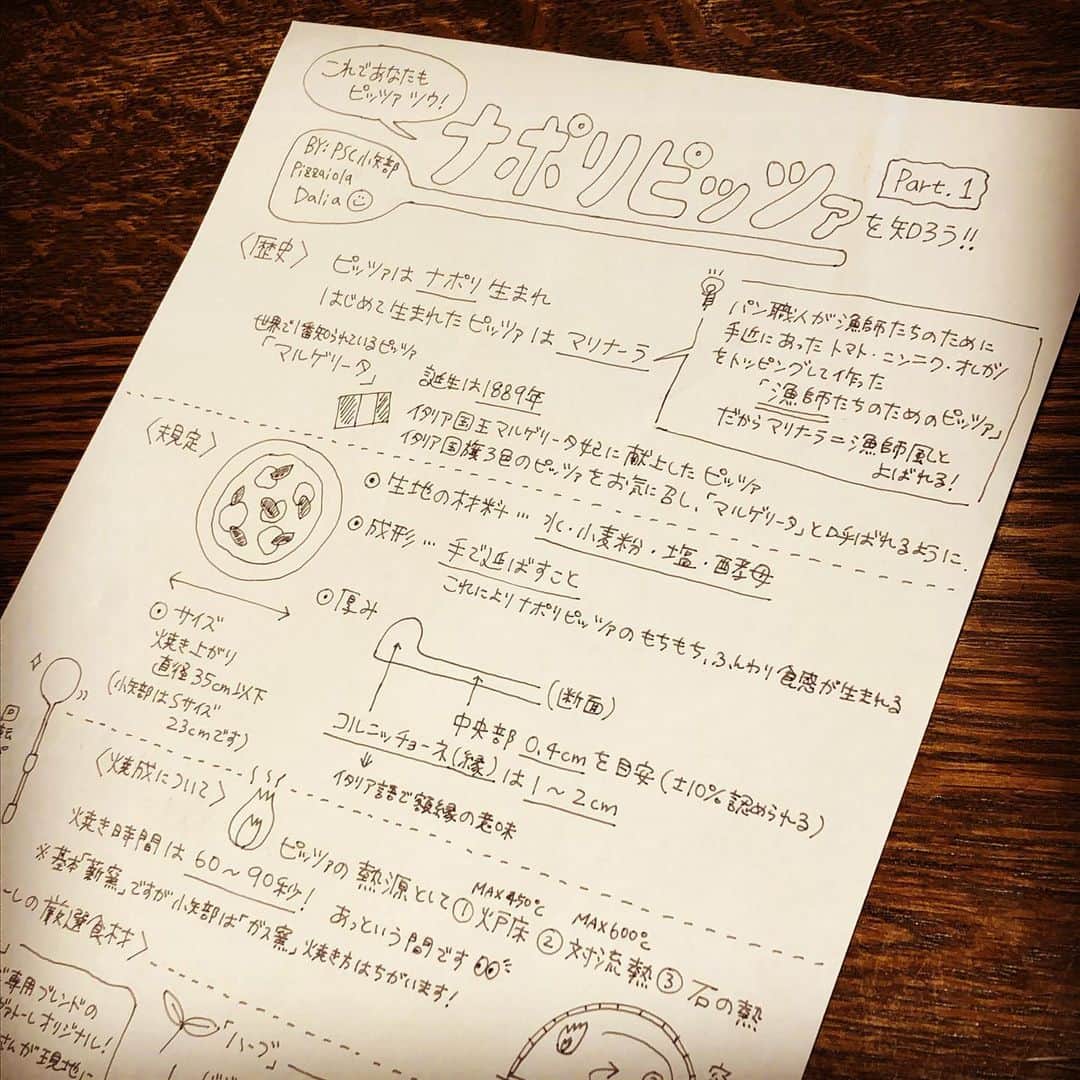 これであなたも
ピッツァ ツウ!
BY: PSC小矢部
Pizzaiola
Dalia
ナポリピッツァ
Part.1
を知ろう!!
〈歴史〉
ピッツァは ナポリ 生まれ
はじめて生まれた ピッツァは マリナーラ
パン職人が漁師たちのために
手近にあった トマト・ニンニク・オレガノ
をトッピングして作った
「漁師たちのためのピッツァ」
だからマリナーラ=漁師風と
よばれる!
世界で1番知られているピッツァ
「マルゲリータ」
誕生は1889年
イタリア国王マルゲリータ妃に献上したピッツァ
イタリア国旗3色のピッツァをお気に召し、「マルゲリータ」と呼ばれるように.
〈規定〉
生地の材料… 水・小麦粉・塩・酵母
成形… 手で延ばすこと
これによりナポリピッツァのもちもち、ふんわり食感が生まれる
サイズ
焼き上がり
直径35cm以下
(小矢部はSサイズ
23cmです)
厚み
(断面)
中央部 0.4cm を目安(±10%認められる)
コルニッチョーネ(縁)は 1〜2cm
イタリア語で額縁の意味
回転
〈焼成について〉
ピッツァの 熱源として ① 炉床 ② 対流熱 ③ 石の熱
MAX450℃
MAX600℃
焼き時間は 60〜90秒! あっという間です
※基本「薪窯」ですが小矢部は「ガス窯」焼き方はちがいます!
ーしの厳選食材〉
専用ブレンドの
ヴァトーレオリジナル!
さんが現地に
「ハーブ」